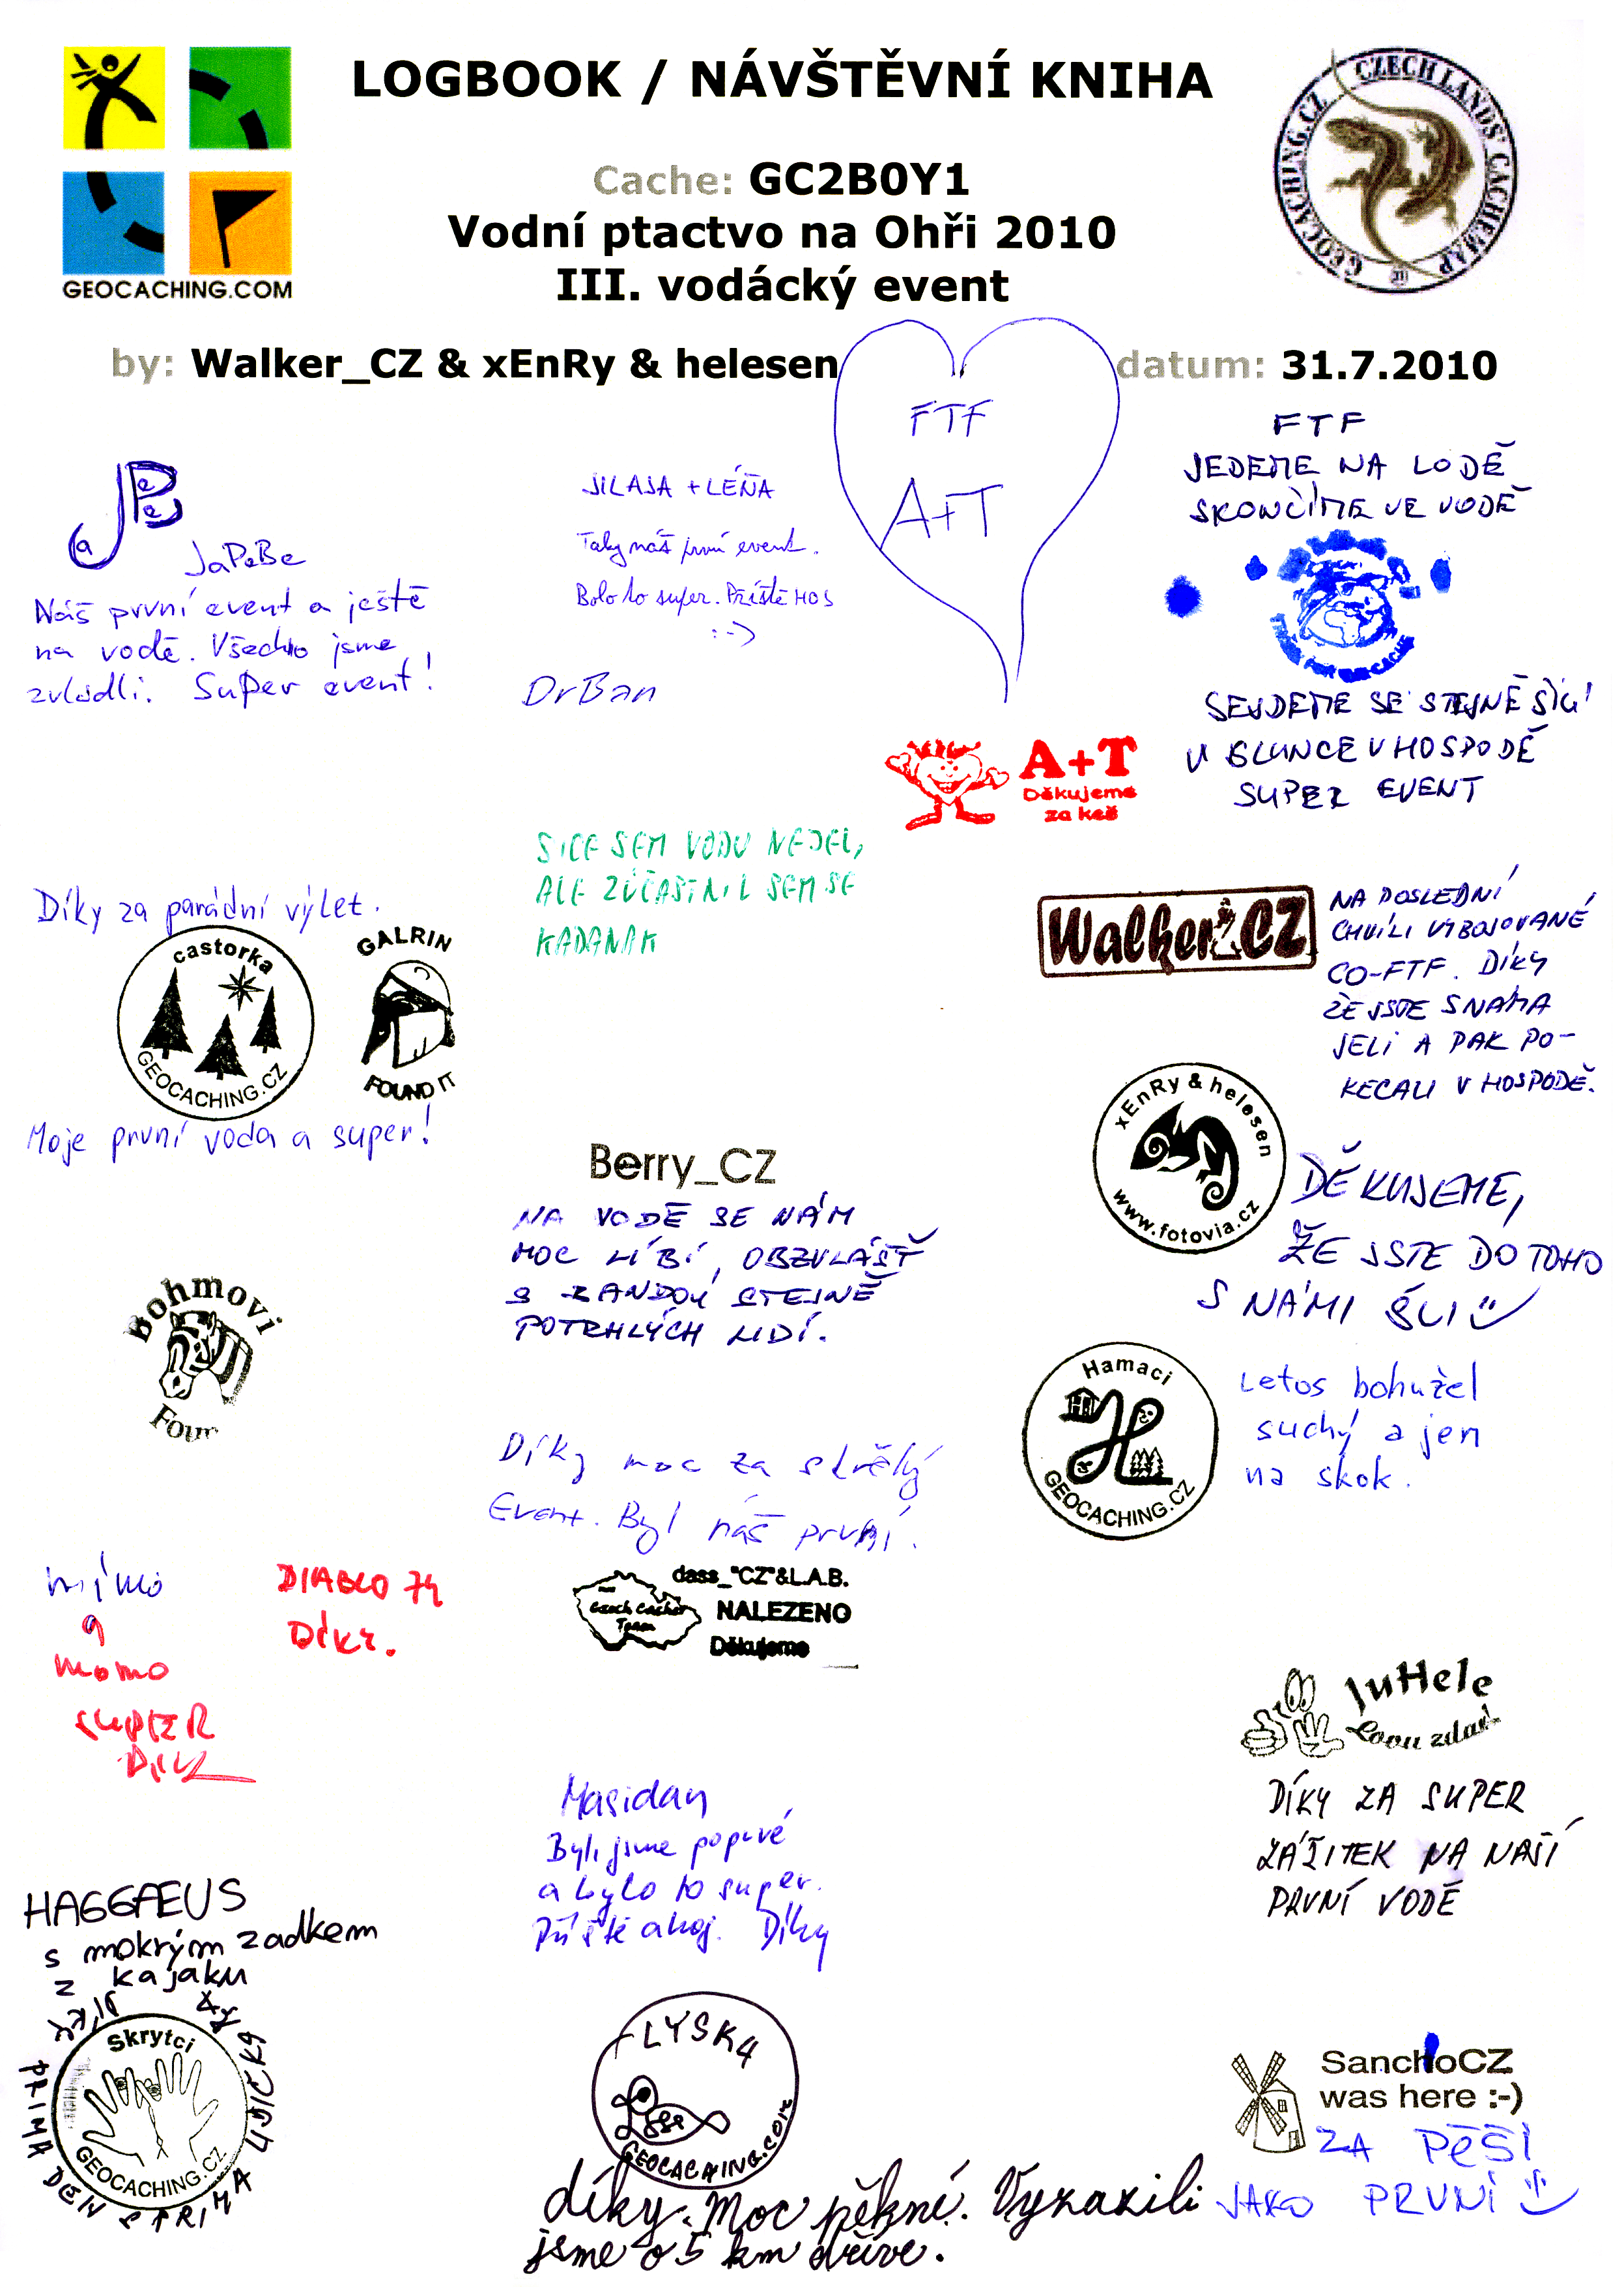 LOGBOOK / NÁVŠTĚVNÍ KNIHA
Cache: GC2B0Y1
Vodní ptactvo na Ohři 2010
III. vodácký event
GEOCACHING.COM
GEOCACHING.CZ CZECH LANDS' CACHEMAP
by: Walker_CZ & xEnRy & helesen
datum: 31.7.2010
JaPeBe
Náš první event a ještě
na vodě. Všechno jsme
zvládli. Super event!
JILAJA + LÉŇA
Taky náš první event.
Bolo to super. Příště HOS
:-)
DrBan
FTF
A+T
A+T
Děkujeme
za keš
FTF
JEDEME NA LODĚ
SKONČÍME VE VODĚ
SEJDEME SE STEJNĚ
U SLUNCE V HOSPODĚ
SUPER EVENT
Díky za parádní výlet.
castorka
GEOCACHING.CZ
GALRIN
FOUND IT
Moje první voda a super!
SICE SEM VODU NEJEL,
ALE ZÚČASTNIL SEM SE
KADANAK
Walker CZ
NA POSLEDNÍ
CHVÍLI VYBOJOVANÉ
CO-FTF. DÍKY
ŽE JSTE S NAMA
JELI A PAK PO-
KECALI V HOSPODĚ.
xEnRy & helesen
www.fotovia.cz
DĚKUJEME,
ŽE JSTE DO TOHO
S NÁMI ŠLI
Berry_CZ
NA VODĚ SE NÁM
MOC LÍBÍ, OBZVLÁŠŤ
S BANDOU STEJNĚ
POTRHLÝCH LIDÍ.
Bohmovi
Foun
Hamaci
GEOCACHING.CZ
Letos bohužel
suchý a jen
na skok.
Díky moc za skvělý
Event. Byl náš první.
dass_"CZ"&L.A.B.
Czech Cacher
Team
NALEZENO
Děkujeme
mimo
a
momo
SUPER
DIKY
DIABLO 74
Díky.
JuHele
Lovu zdar
DÍKY ZA SUPER
ZÁŽITEK NA NAŠÍ
PRVNÍ VODĚ
Masidan
Byli jsme poprvé
a bylo to super.
Příště ahoj. Díky
HAGGAEUS
s mokrým zadkem
z kajaku
Skrytci
GEOCACHING.CZ
PRIMA DEN S PRIMA
LYSKA
GEOCACHING.COM
díky. Moc pěkné. Vyrazili
jsme o 5 km dříve.
SanchoCZ
was here :-)
ZA PĚŠÍ
JAKO PRVNÍ